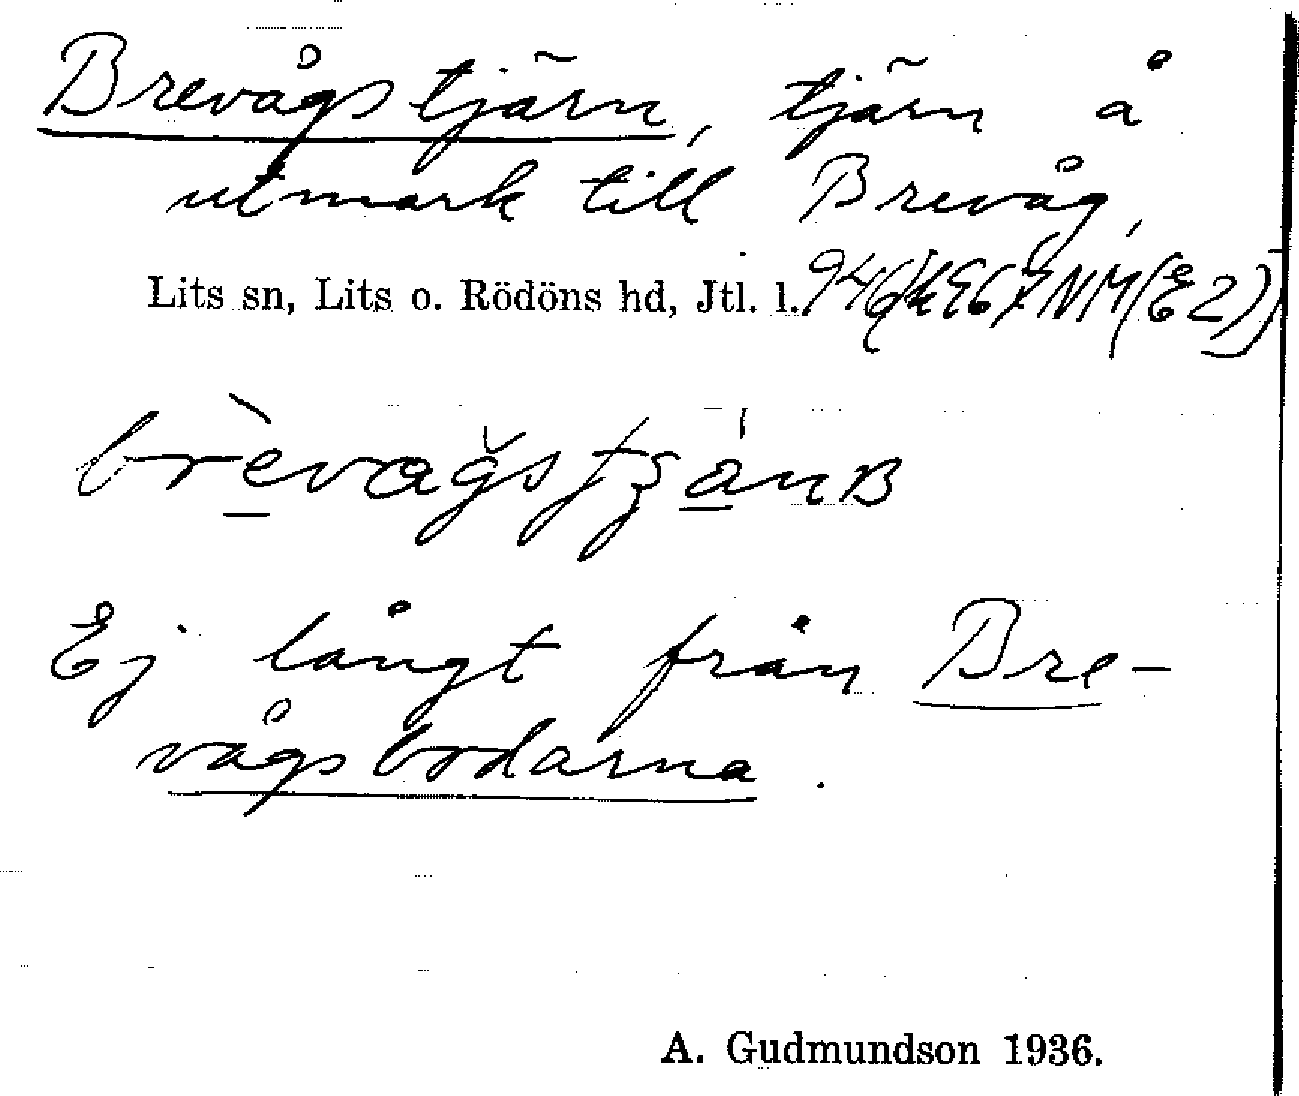 Brevågstjärn, tjärn å
utmark till Brevåg,
Lits sn, Lits o. Rödöns hd, Jtl. l.
Ej långt från Bre-
vågsbodarna.
A. Gudmundson 1936.